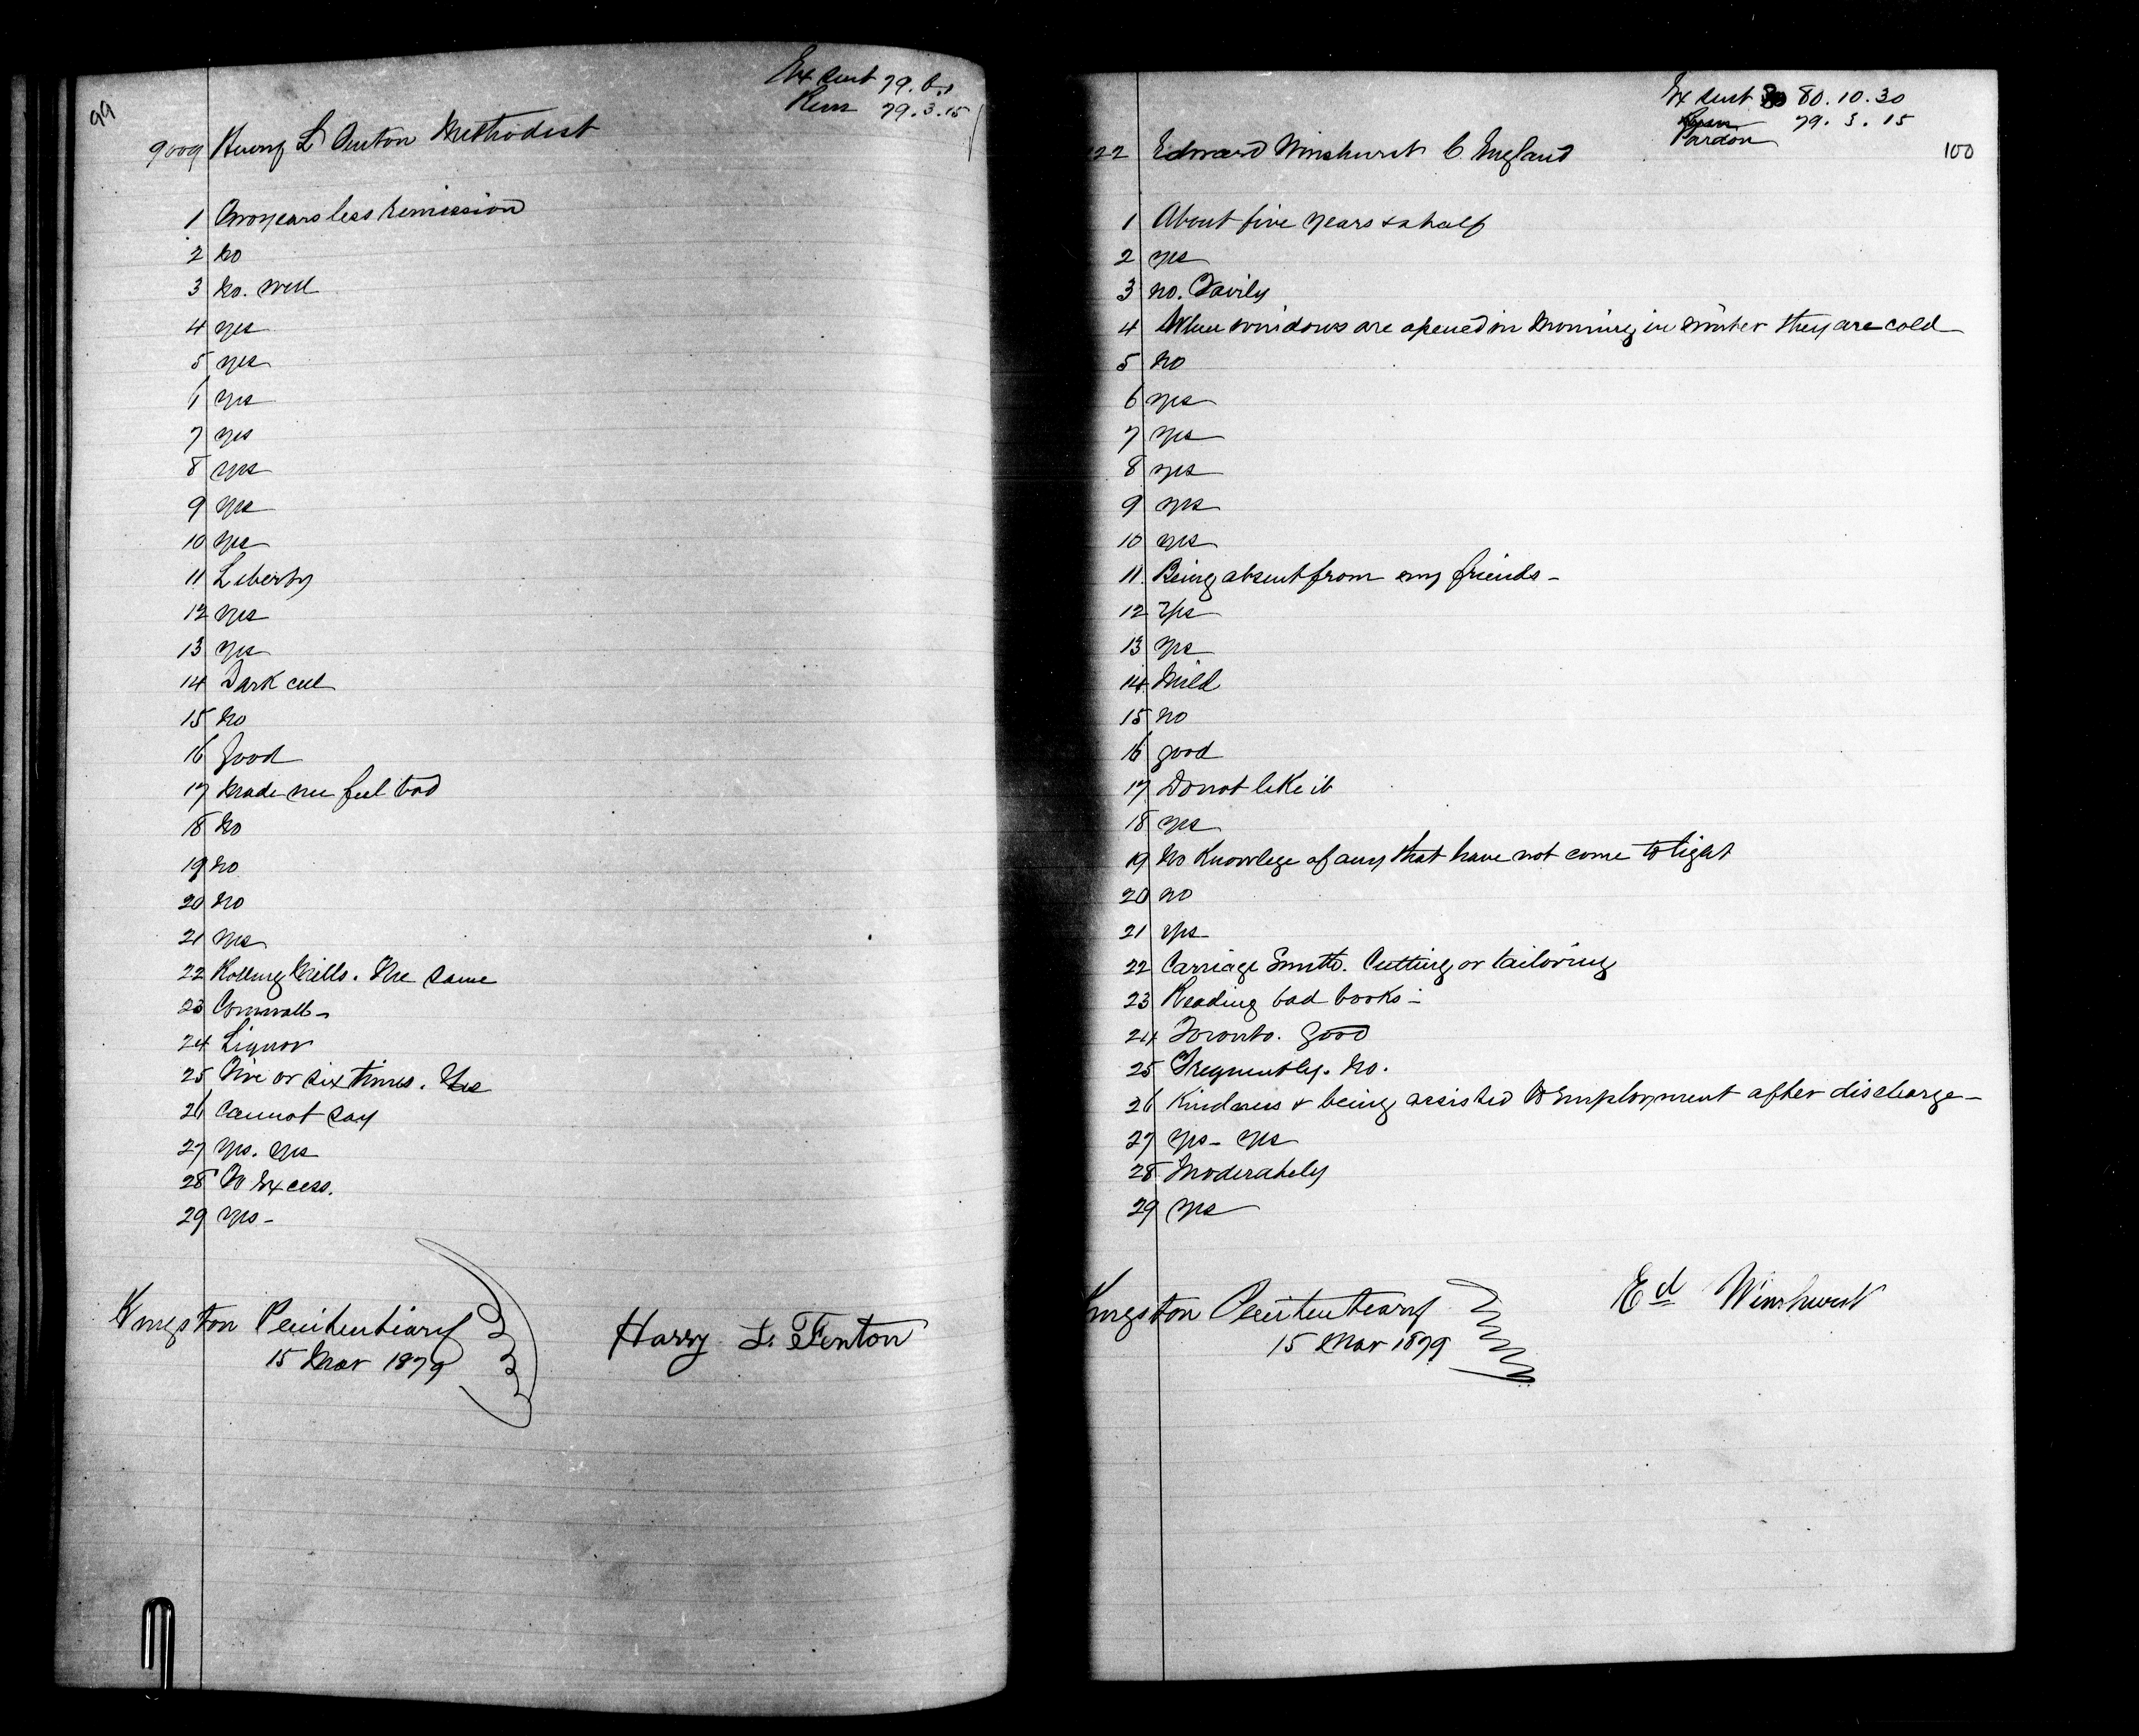 99
Ex Sent 79. 6.1
Rem 79.3.15
9009 Henry L Fenton Methodist
1 Two years less remission
2 No
3 No. Well
4 yes
5 yes
6 yes
7 yes
8 yes
9 yes
10 yes
11 Liberty
12 yes
13 yes
14 Dark cell
15 No
16 Good
17 Made me feel bad
18 No
19 No
20 No
21 yes
22 Rolling Mills. The same
23 Cornwall -
24 Liquor
25 Five or six times. Yes
26 Cannot say
27 yes. yes
28 To Excess.
29 yes -
Kingston Penitentiary
15 Mar 1879
Harry L. Fenton
Ex Sent 80.10.30
79. 3. 15
Pardon
100
22 Edward Winshurst C. England
1 About five years & a half
2 yes
3 No. Fairly
4 When windows are opened in morning in winter they are cold -
5 No
6 yes
7 yes
8 yes
9 yes
10 yes
11 Being absent from my friends -
12 yes
13 yes
14 Mild
15 No
16 good
17 Do not like it
18 yes
19 No Knowlege of any that have not come to light
20 no
21 yes -
22 Carriage Smith. Cutting or tailoring
23 Reading bad books -
24 Toronto. Good
25 Frequently. No.
26 Kindness & being assisted to Employment after discharge -
27 yes - yes
28 Moderately
29 yes
Kingston Penitentiary
15 Mar 1879
Ed Winshurst